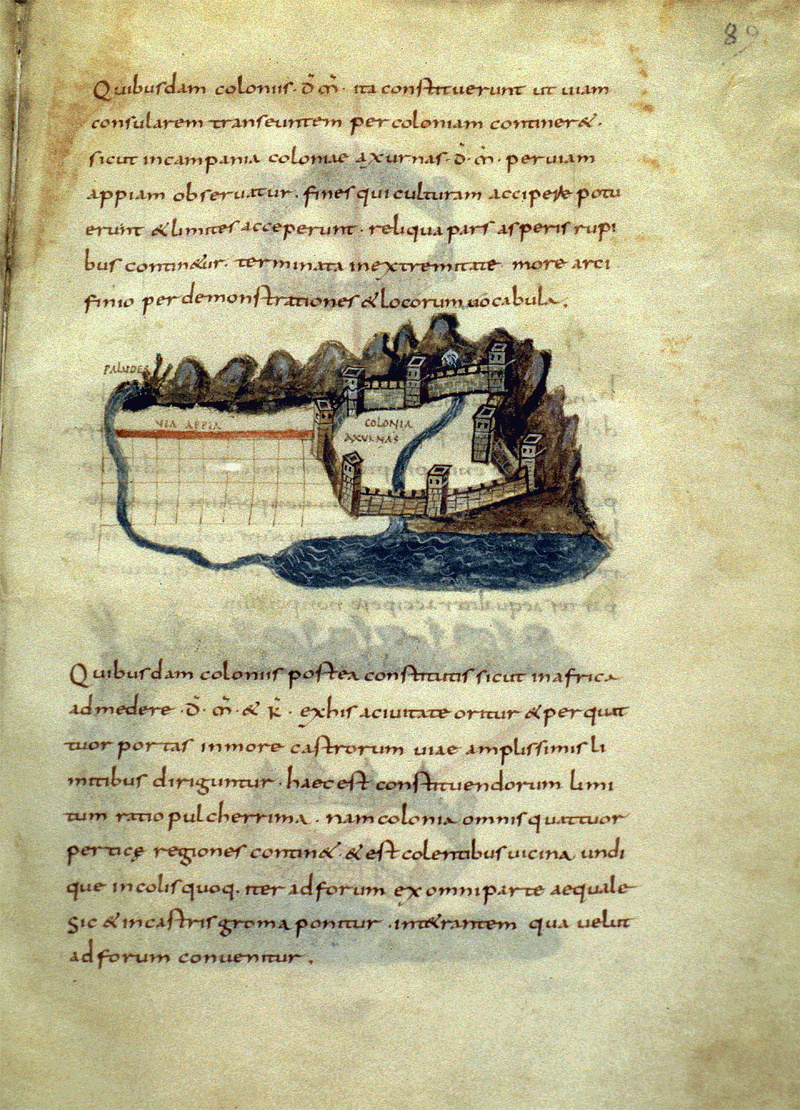 89
Quibusdam coloniis · d̄ m̄ · ita constituerunt ut uiam
consularem transeuntem per coloniam continer& ·
sicut incampania coloniae axurnas · d̄ · m̄ · peruiam
appiam obseruatur · fines qui culturam accipere potu
erunt &limites acceperunt · reliqua pars asperis rupi
bus contin&ur · terminata inextremitate more arci
finio per demonstrationes &locorum uocabula .
PALUDES
VIA APPIA
COLONIA
AXURNAS
Quibusdam coloniis postea constitutis sicut inafrica
admedere · d̄ · m̄ · & k̄ · exhis aciuitate oritur &per quat
tuor portas inmore castrorum uiae amplissimis li
mitibus diriguntur · haec est constituendorum limi
tum ratio pulcherrima · nam colonia omnis quattuor
perticę regiones contin& · &est colentibus uicina undi
que incolis quoq. iter adforum ex omni parte aequale
Sic &incastris groma ponitur · int&rantem qua uelut
adforum conuenitur .